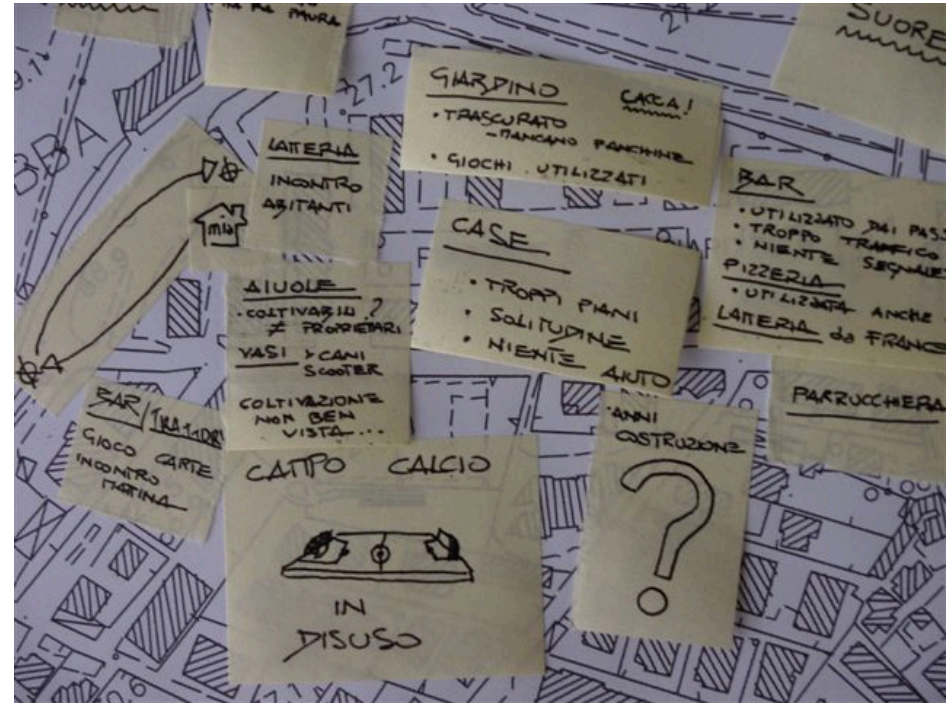 PAURA
SUORE
27.2
GIARDINO CACCA!
• TRASCURATO
- MANCANO PANCHINE
• GIOCHI UTILIZZATI
LATTERIA
INCONTRO
ABITANTI
mia
BAR
• UTILIZZATO DAI PASS
• TROPPO TRAFFICO
• NIENTE SEGNALE
PIZZERIA
• UTILIZZATA ANCHE
LATTERIA da FRANCE
CASE
• TROPPI PIANI
• SOLITUDINE
• NIENTE AIUTO
AIUOLE
• COLTIVABILI?
≠ PROPRIETARI
VASI > CANI
SCOOTER
COLTIVAZIONE
NON BEN
VISTA...
BAR/TRATTOR
GIOCO CARTE
INCONTRO
MATTINA
PARRUCCHIERA
ANNI
COSTRUZIONE
?
CAMPO CALCIO
IN
DISUSO